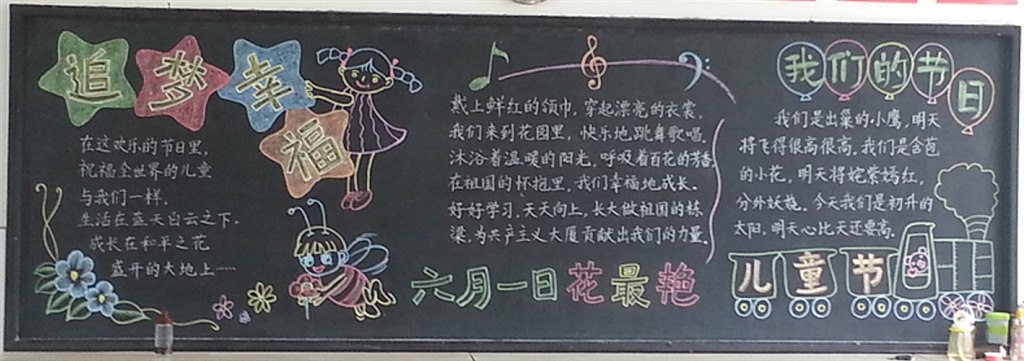 追梦幸福
在这欢乐的节日里,
祝福全世界的儿童
与我们一样,
生活在蓝天白云之下.
成长在和平之花
盛开的大地上……
戴上鲜红的领巾,穿起漂亮的衣裳,
我们来到花园里,快乐地跳舞歌唱.
沐浴着温暖的阳光,呼吸着百花的芳香.
在祖国的怀抱里,我们幸福地成长.
好好学习,天天向上,长大做祖国的栋
梁,为共产主义大厦贡献出我们的力量.
六月一日花最艳
我们的节日
我们是出巢的小鹰,明天
将飞得很高很高.我们是含苞
的小花,明天将姹紫嫣红,
分外妖娆.今天我们是初升的
太阳,明天心比天还要高.
儿童节